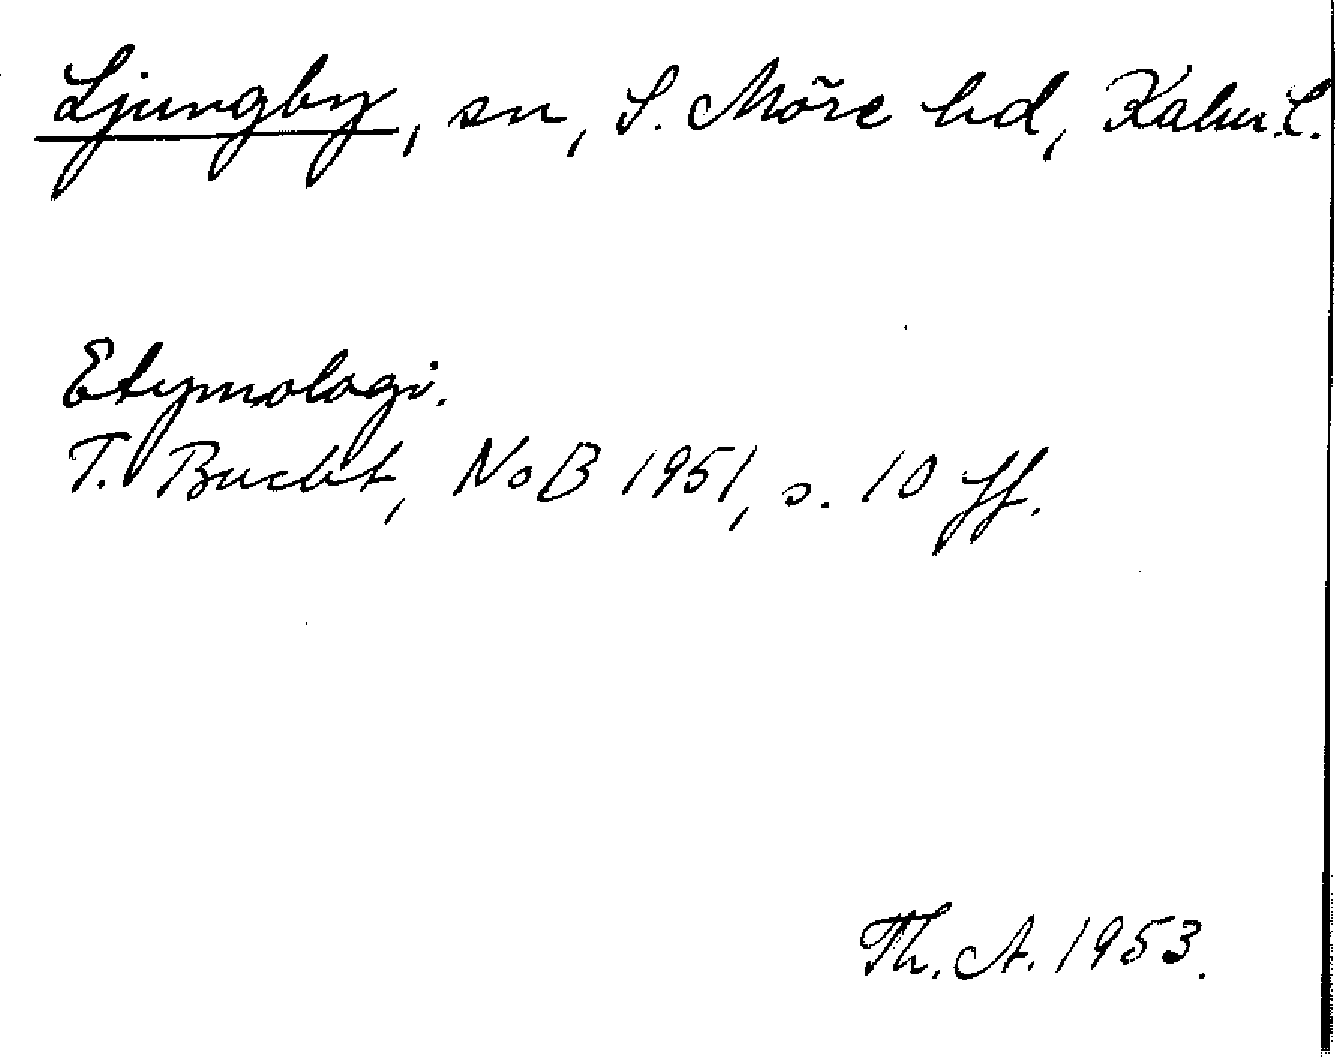 Ljungby, sn, S. Möre hd, Kalm. l.
Etymologi.
T. Bucht, NoB 1951, s. 10 ff.
Th. A. 1953.